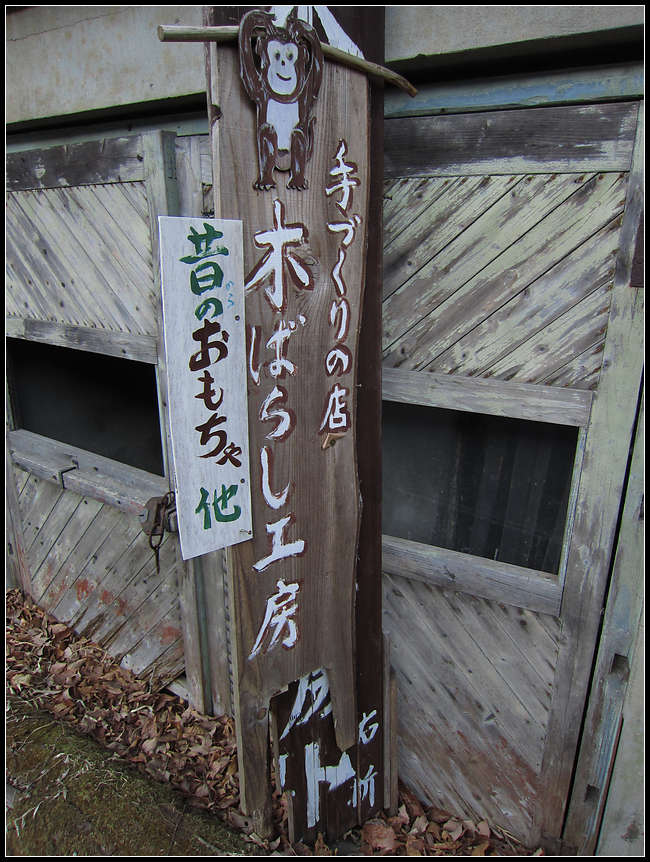 手づくりの店
木ばらし工房
昔の
おもちゃ
他
右折